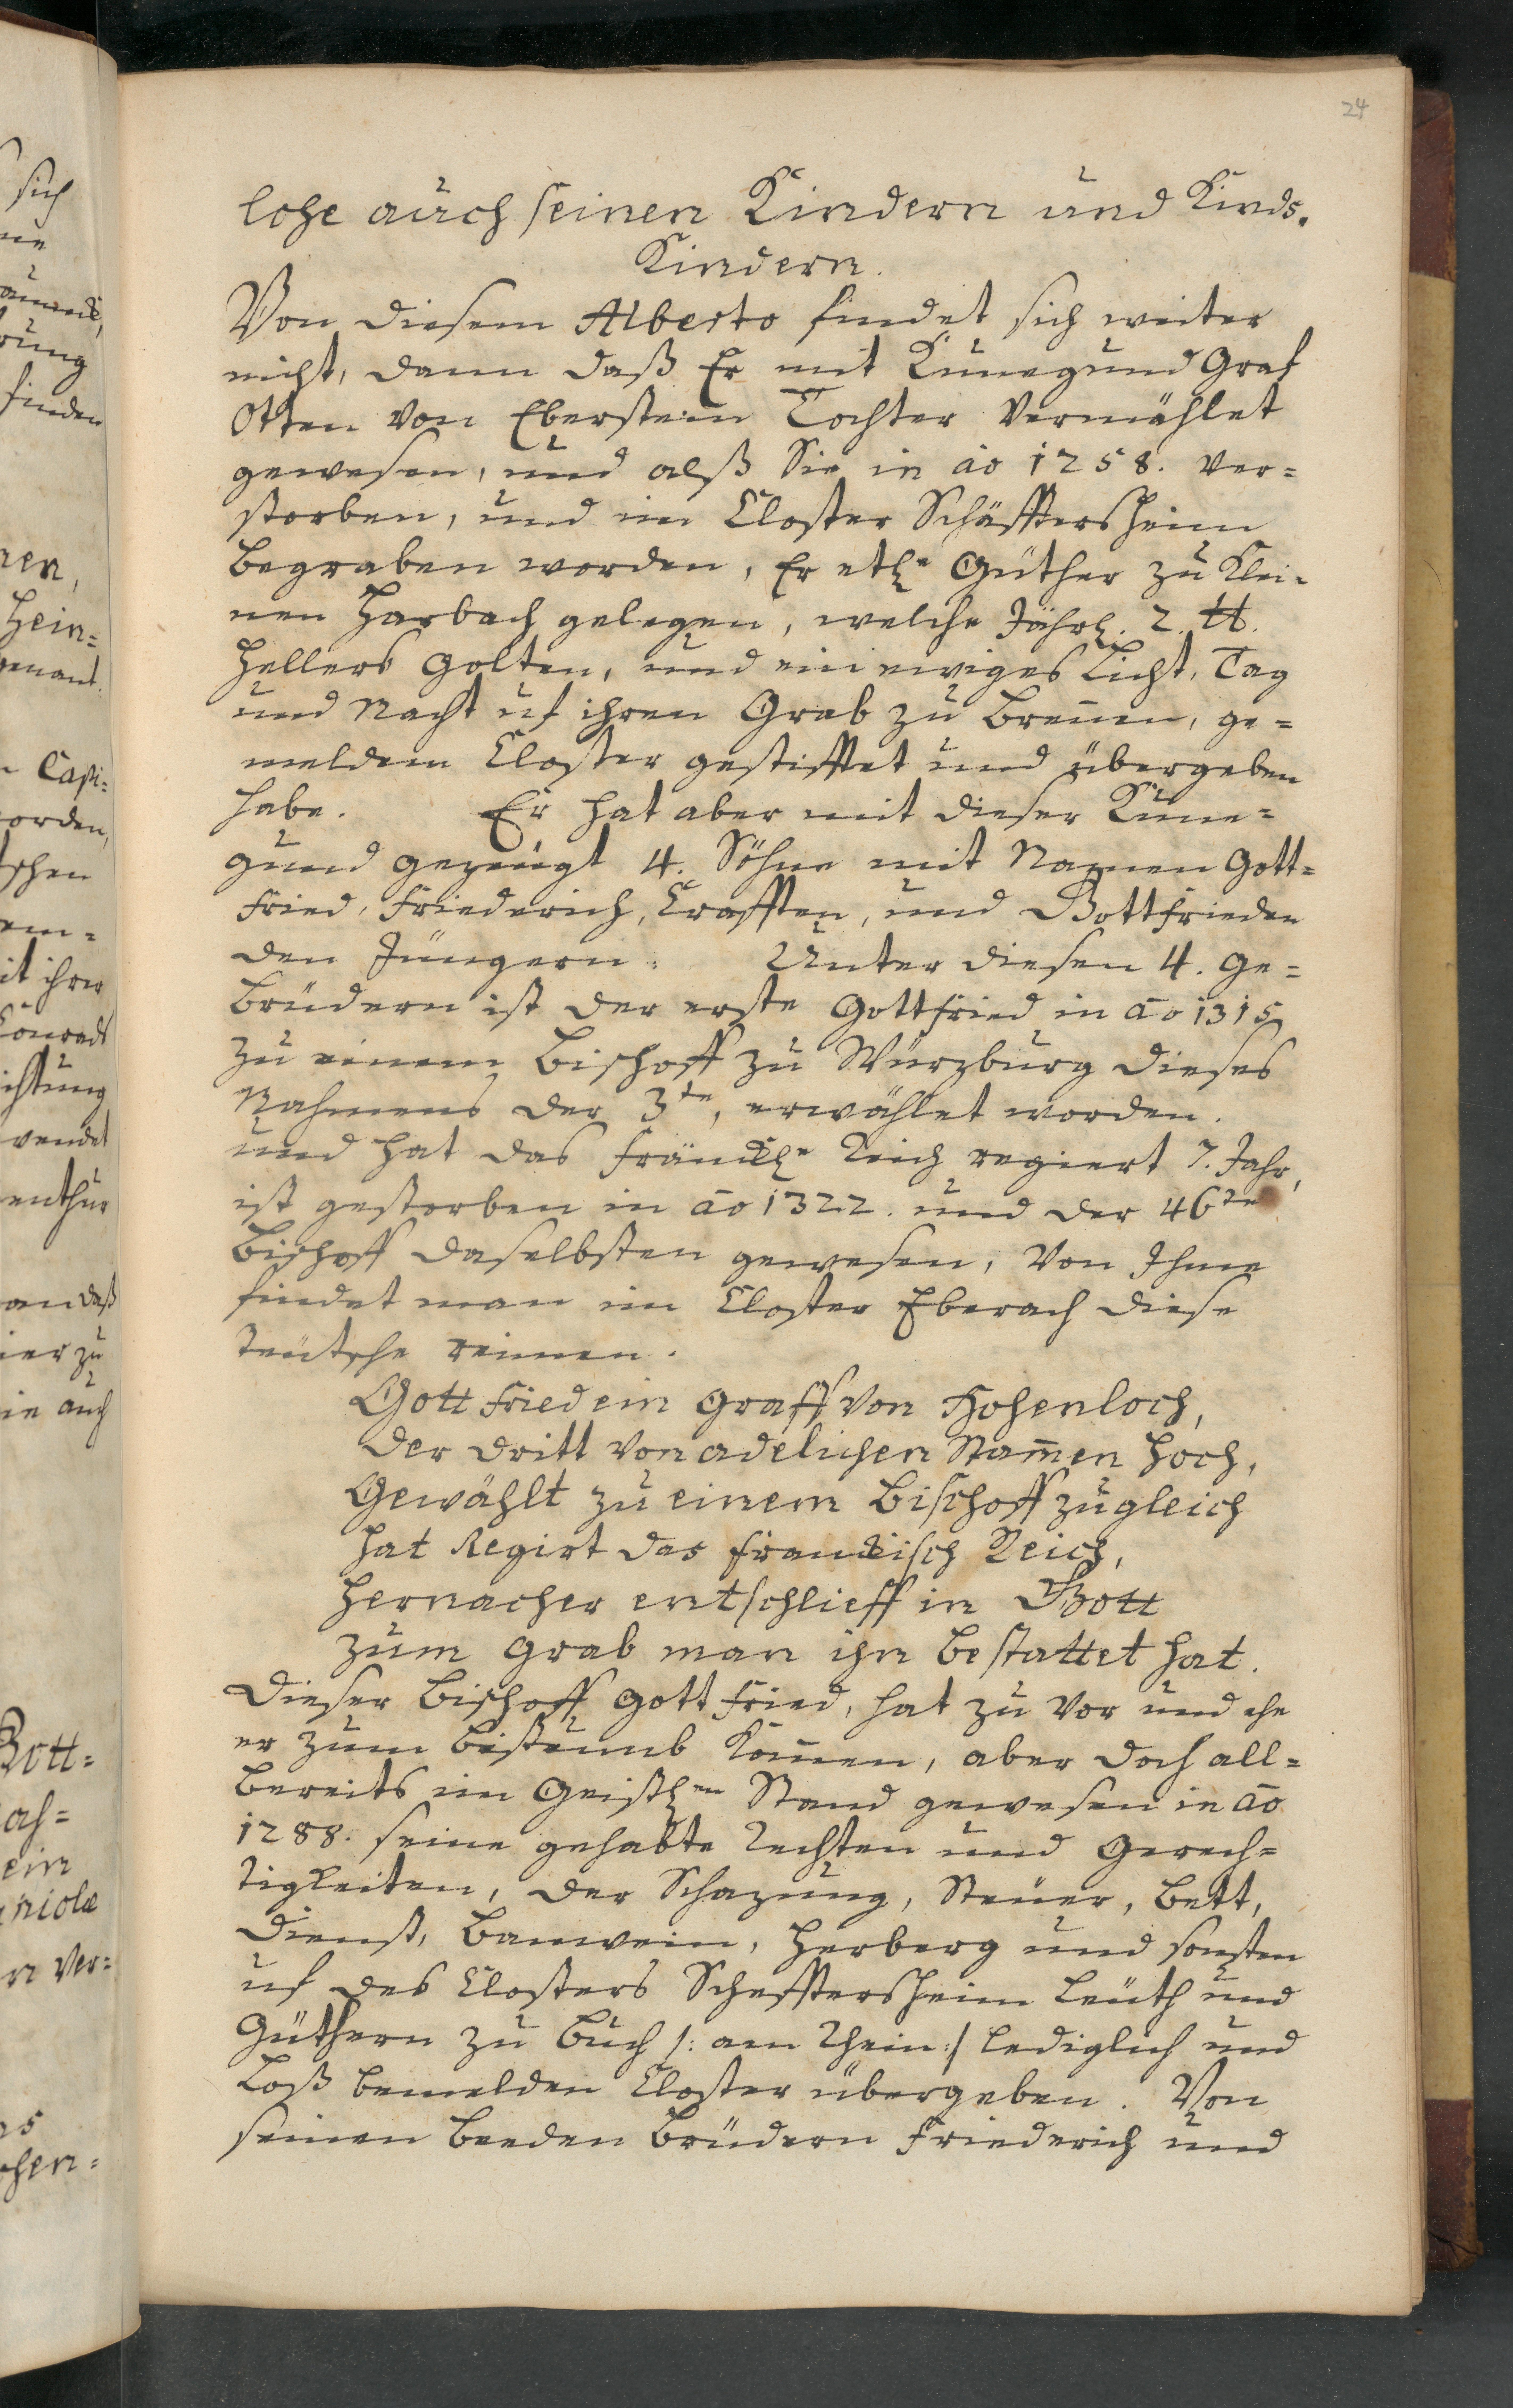 24
lohe auch seinen Kindern und Kinds.
Kindern.
Von diesem Alberto findet sich weiter
nicht, dann daß Er mit Kunegund Graf
Otten von Eberstein Tochter vermählet
gewesen, und alß Sie in ao 1258. ver=
storben, und im Closter Schäfftersheim
begraben worden, Er etl. Güther zu Klei=
nen Harbach gelegen, welche Jährl. 2. ℔.
Hellers golten, und ein ewiges Licht, Tag
und Nacht uf ihren Grab zu brennen, ge=
meldem Closter gestifftet und übergeben
habe. Er hat aber mit dieser Kune=
gund gezeugt 4. Söhne mit Namen Gott=
fried, Friederich, Crafften, und Gottfrieden
den Jüngern. Unter diesen 4. Ge=
brüdern ist der erste Gottfried in ao 1315
zu einem Bischoff zu Würzburg dieses
Nahmens der 3te, erwählet worden.
und hat das Fränckl. Reich regiert 7. Jahr,
ist gestorben in ao 1322. und der 46te
Bischoff daselbsten gewesen, Von Ihme
findet man im Closter Eberach diese
teütsche reimen.
Gottfried ein Graff von Hohenloch,
der dritt von adelichen Stam̄en hoch,
Gewählt zu einem Bischoff zugleich
hat Regirt das franckisch Reich,
hernacher entschlieff in Gott
zum Grab man ihn bestattet hat.
Dieser Bischoff Gottfried, hat zu vor und ehe
er zum Bistumb kom̄en, aber doch all=
bereits im Geistl.en Stand gewesen in ao
1288. seine gehabte Rechten und Gerech=
tigkeiten, der Schazung, Steuer, Bett,
Dienst, Banwein, Herberg und sonsten
uf des Closters Scheffersheim Leüth und
Güthern zu Buch /: am Rhein :/ lediglich und
Loß bemelden Closter übergeben. Von
seinen beeden Brüdern Friederich und